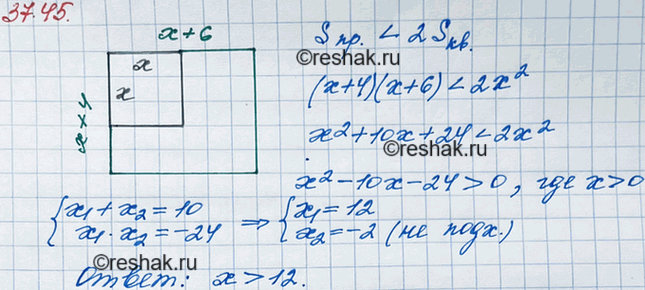 37.45.
x+6
x
x
x+4
Sпр. < 2Sкв.
©reshak.ru
(x+4)(x+6) < 2x²
x²+10x+24 < 2x²
©reshak.ru
x²-10x-24 > 0, где x>0
{x₁+x₂=10
x₁·x₂=-24
⇒ {x₁=12
x₂=-2 (не подх.)
©reshak.ru
Ответ: x > 12.